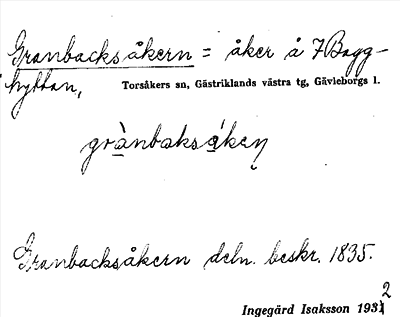 Granbacksåkern = åker å 7 Bagg-
hyttan,
Torsåkers sn, Gästriklands västra tg, Gävleborgs l.
grànbaksákeṇ
Granbacksåkern deln. beskr. 1835.
Ingegärd Isaksson 1932